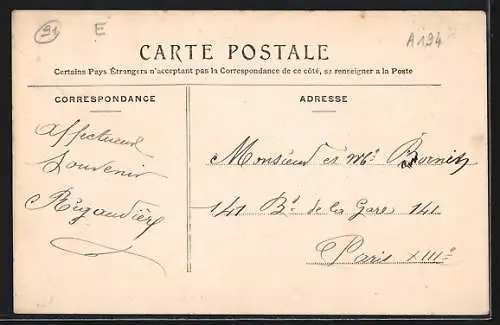 91
E
A194
CARTE POSTALE
Certains Pays Étrangers n'acceptant pas la Correspondance de ce côté, se renseigner a la Poste
CORRESPONDANCE
Affectueux
Souvenir
Rigaudière
ADRESSE
Monsieur et Mme
141 Bd de la Gare 141
Paris XIIIe